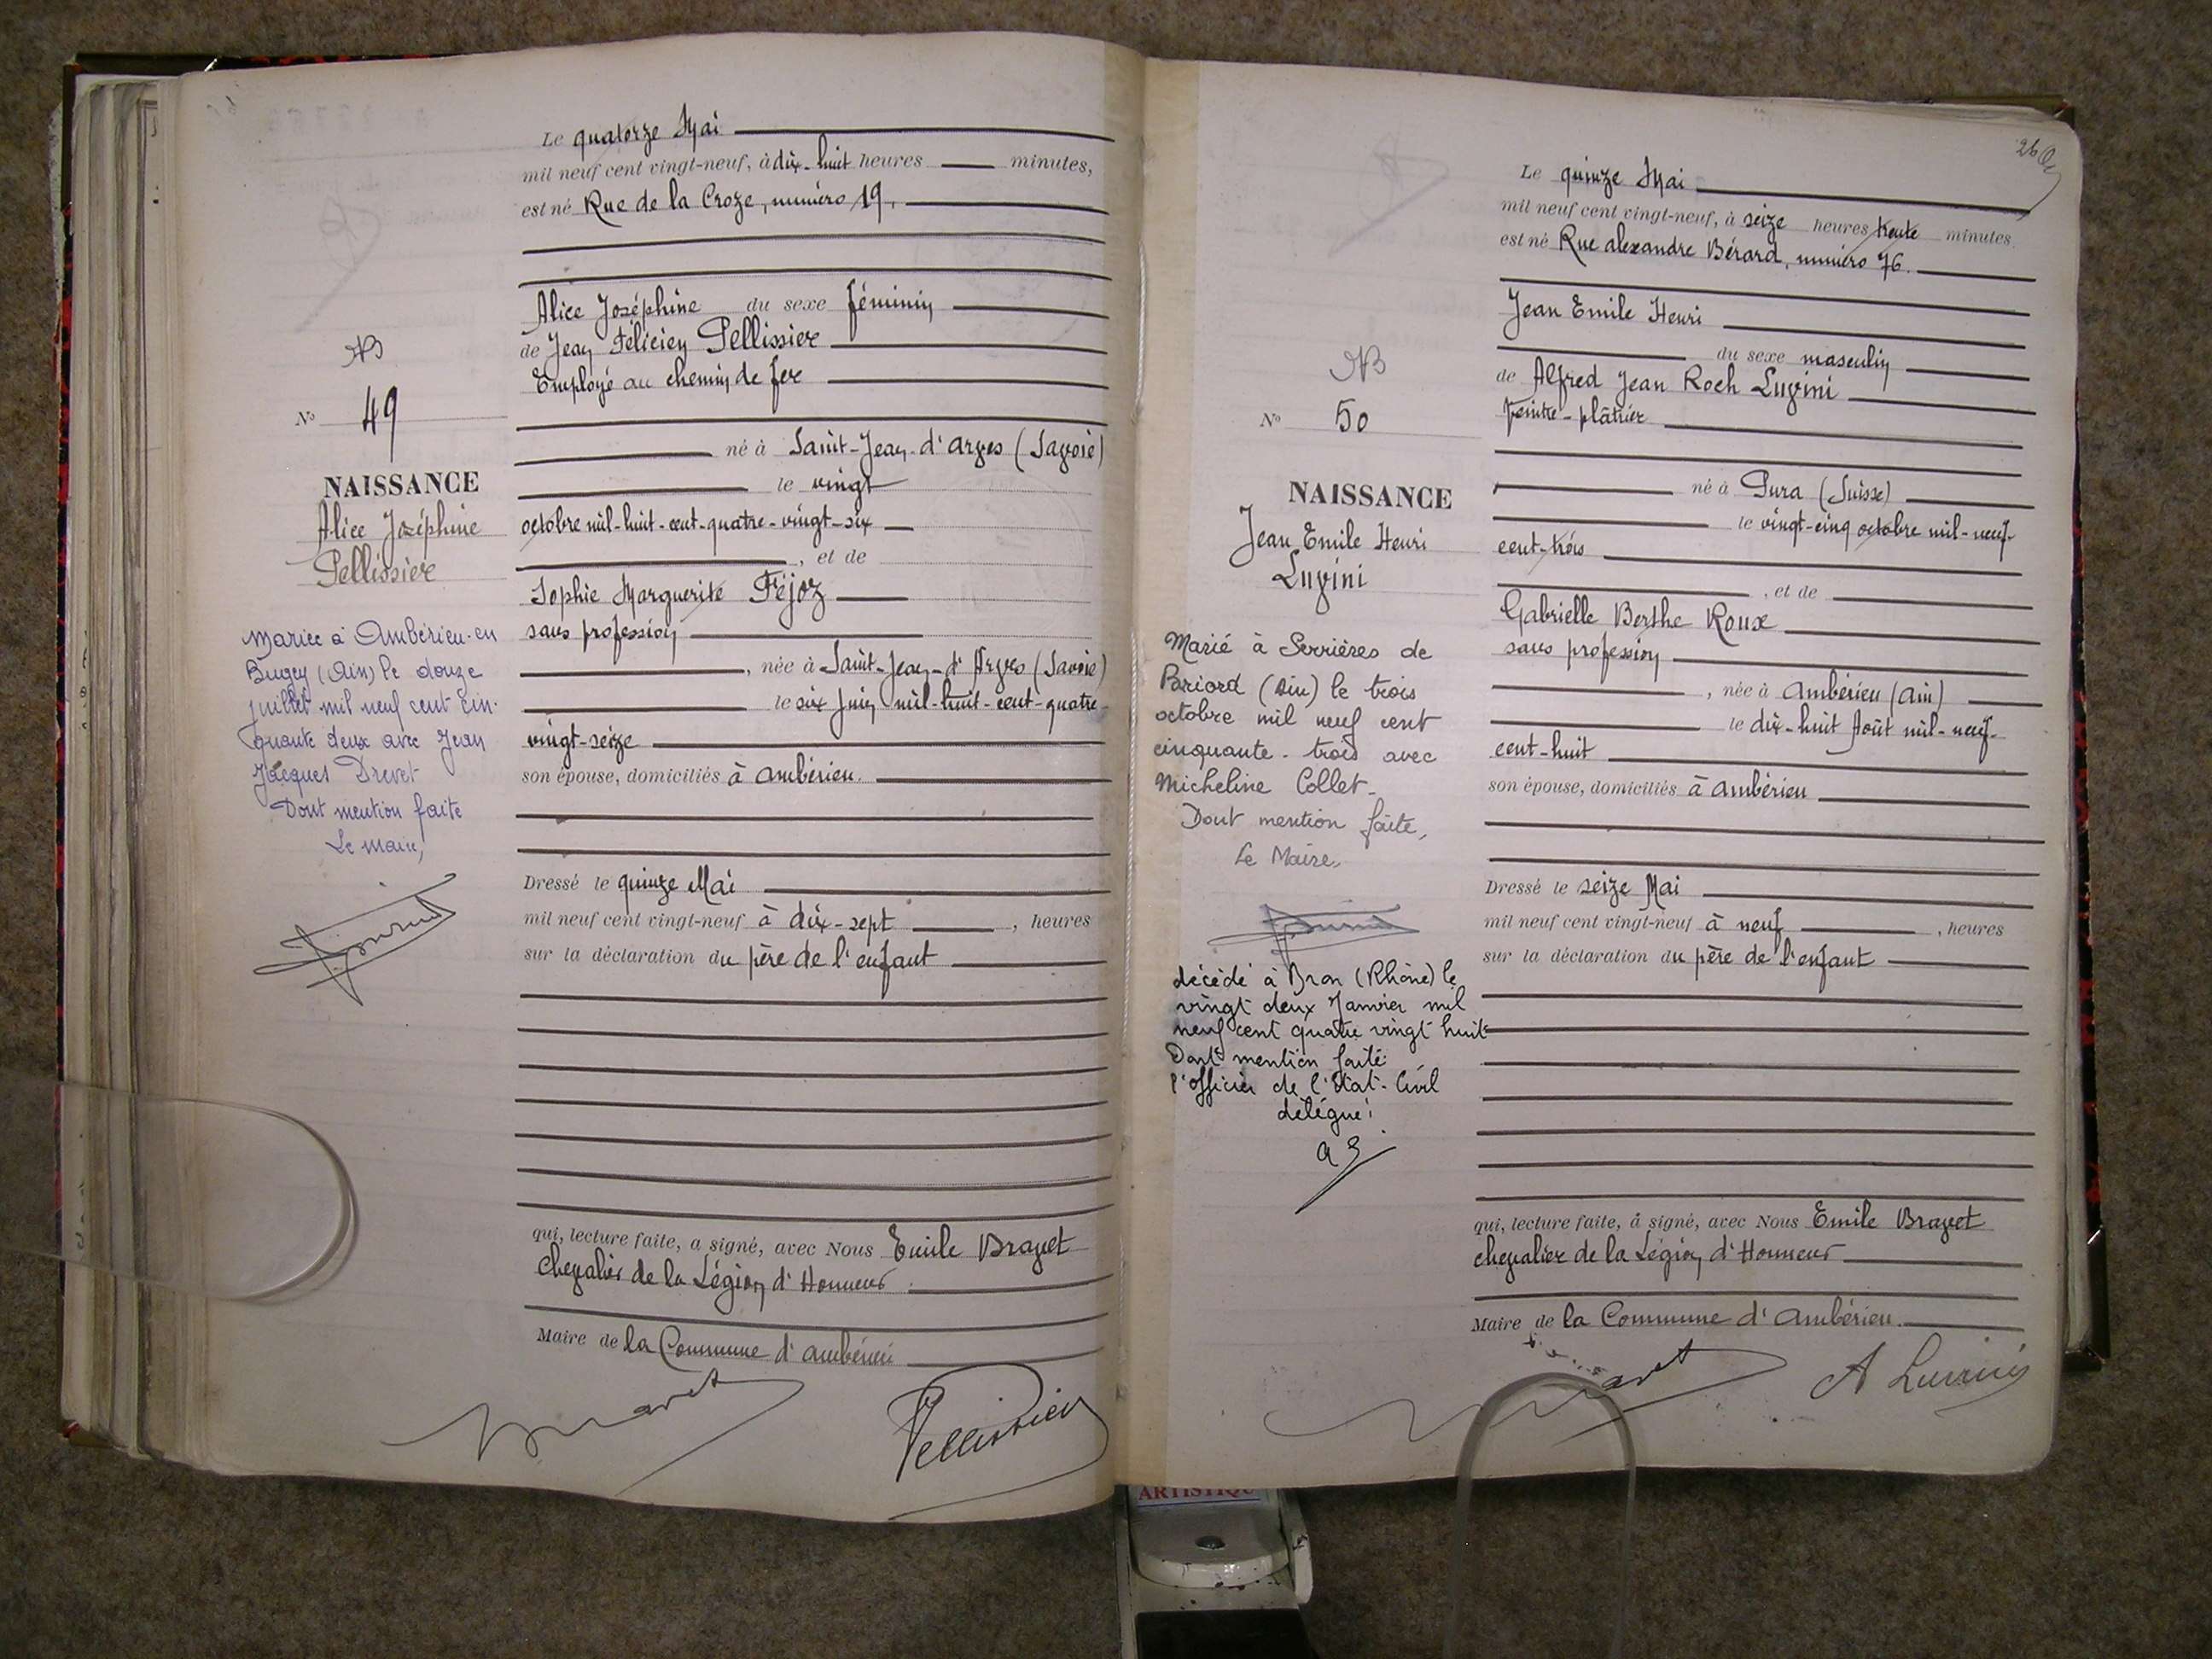 Le quatorze Mai
mil neuf cent vingt-neuf, à dix-huit heures minutes,
est né Rue de la Croze, numéro 19.
Alice Joséphine du sexe féminin
de Jean Félicien Pellissier
Employé au chemin de fer
né à Saint-Jean-d'Arves (Savoie)
le vingt
octobre mil-huit-cent-quatre-vingt-six
, et de
Sophie Marguerite Féjoz
sans profession
, née à Saint-Jean-d'Arves (Savoie)
le six Juin mil-huit-cent-quatre-
vingt-seize
son épouse, domiciliés à Ambérieu.
Dressé le quinze Mai
mil neuf cent vingt-neuf à dix-sept , heures
sur la déclaration du père de l'enfant
qui, lecture faite, a signé, avec Nous Emile Bravet
chevalier de la Légion d'Honneur.
Maire de la Commune d'Ambérieu
Bravet
Pellissier
N° 49
NAISSANCE
Alice Joséphine
Pellissier
Mariée à Ambérieu-en
Bugey (Ain) le douze
juillet mil neuf cent cin-
quante deux avec Jean
Jacques Drevet
Dont mention faite
Le Maire,
26
Le quinze Mai
mil neuf cent vingt-neuf, à seize heures trente minutes.
est né Rue Alexandre Bérard, numéro 76.
Jean Emile Henri
du sexe masculin
de Alfred Jean Roch Luvini
peintre-plâtrier
né à Pura (Suisse)
le vingt-cinq octobre mil-neuf-
cent-trois
, et de
Gabrielle Berthe Roux
sans profession
, née à Ambérieu (Ain)
le dix-huit Août mil-neuf-
cent-huit
son épouse, domiciliés à Ambérieu
Dressé le seize Mai
mil neuf cent vingt-neuf à neuf , heures
sur la déclaration du père de l'enfant
qui, lecture faite, a signé, avec Nous Emile Bravet
chevalier de la Légion d'Honneur
Maire de la Commune d'Ambérieu.
Bravet
A Luvini
N° 50
NAISSANCE
Jean Emile Henri
Luvini
Marié à Serrières de
Briord (Ain) le trois
octobre mil neuf cent
cinquante-trois avec
Micheline Collet-
Dont mention faite,
Le Maire,
décédé à Bron (Rhône) le
vingt deux Janvier mil
neuf cent quatre vingt huit
Dont mention faite
l'officier de l'Etat-Civil
délégué:
ARTISTIQU